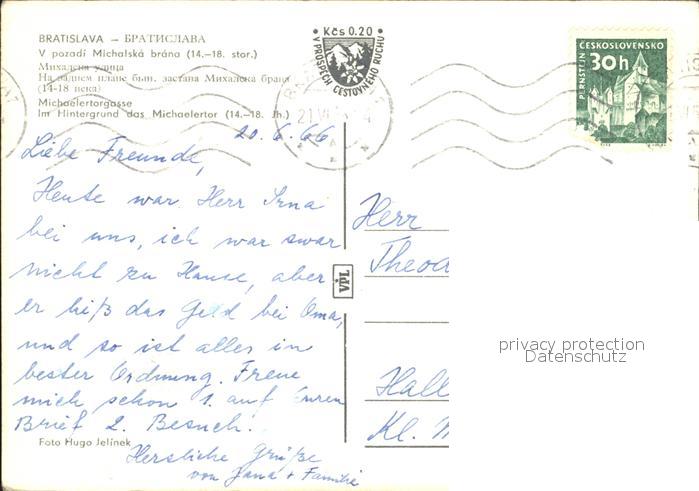 BRATISLAVA – БРАТИСЛАВА
V pozadí Michalská brána (14.–18. stor.)
Михалска улица
На заднем плане быв. застава Михалска брана
(14-18 века)
Michaelertorgasse
Im Hintergrund das Michaelertor (14.–18. Jh.)
Kčs 0.20
V PROSPĚCH CESTOVNÉHO RUCHU
ČESKOSLOVENSKO
30h
PERNŠTEJN
20. 6. 66
Liebe Freunde,
Heute war Herr Irna
bei uns, ich war zwar
nicht zu Hause, aber
er ließ das Geld bei Oma,
und so ist alles in
bester Ordnung. Freue
mich schon 1. auf Euren
Brief 2. Besuch.
Herzliche Grüße
von Jana + Familie
Foto Hugo Jelínek
VPL
Herr
Theod
Hall
Kl.
privacy protection
Datenschutz